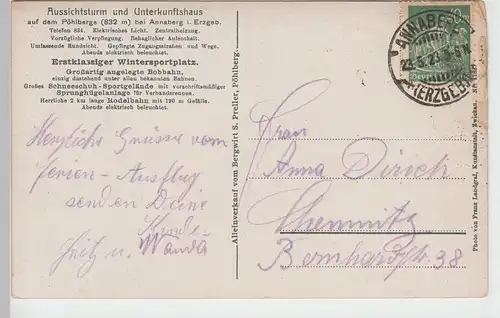 Aussichtsturm und Unterkunftshaus
auf dem Pöhlberge (832 m) bei Annaberg i. Erzgeb.
Telefon 834. Elektrisches Licht. Zentralheizung.
Vorzügliche Verpflegung. Behaglicher Aufenthalt.
Umfassende Rundsicht. Gepflegte Zugangsstraßen und Wege.
Abends elektrisch beleuchtet.
Erstklassiger Wintersportplatz.
Großartig angelegte Bobbahn,
einzig dastehend unter allen bekannten Bahnen.
Großes Schneeschuh-Sportgelände mit vorschriftsmäßiger
Sprunghügelanlage für Verbandsrennen.
Herrliche 2 km lange Rodelbahn mit 190 m Gefälle.
Abends elektrisch beleuchtet.
Herzliche Grüsse vom
Ferien-Ausflug
senden Deine
Fritz u. Wanda
Alleinverkauf vom Bergwirt S. Preller, Pöhlberg.
ANNABERG
(ERZGEB)
Frau
Anna Dirich
Chemnitz
Bernhardstr 38
Photo von Franz Landgraf, Kunstanstalt, Zwickau.